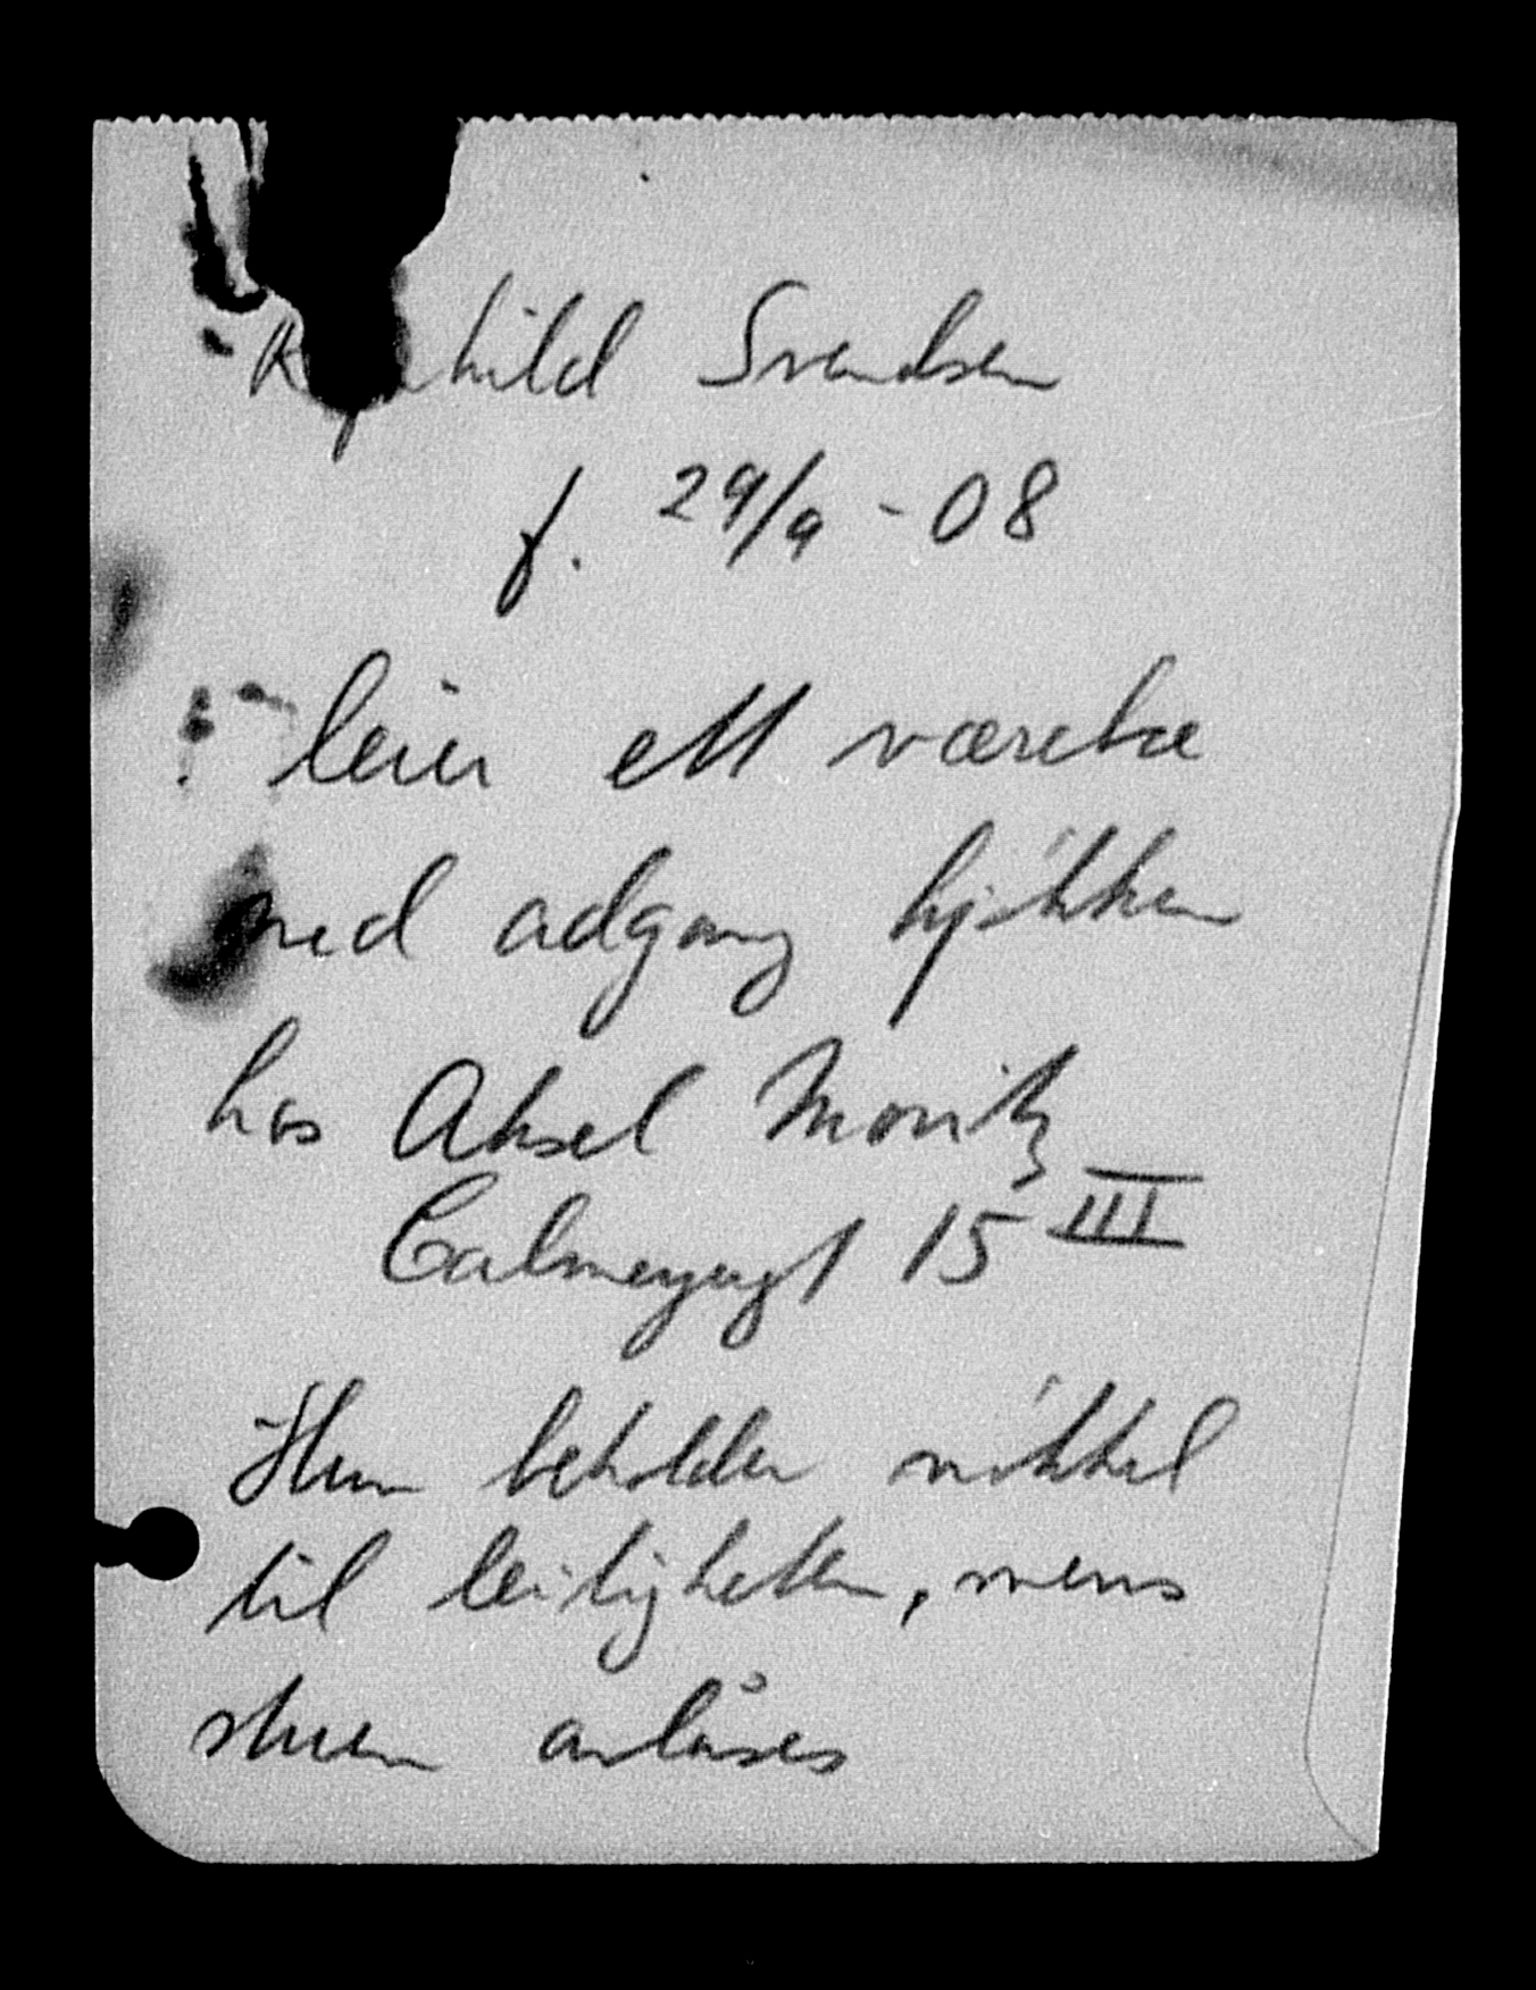 Svendsen
f. 29/9 - 08
leier ett værelse
med adgang kjøkken
hos Aksel Moritz
Calmeyergt 15 III
Hun beholder nøkkel
til leiligheten, mens
stuen avlåses